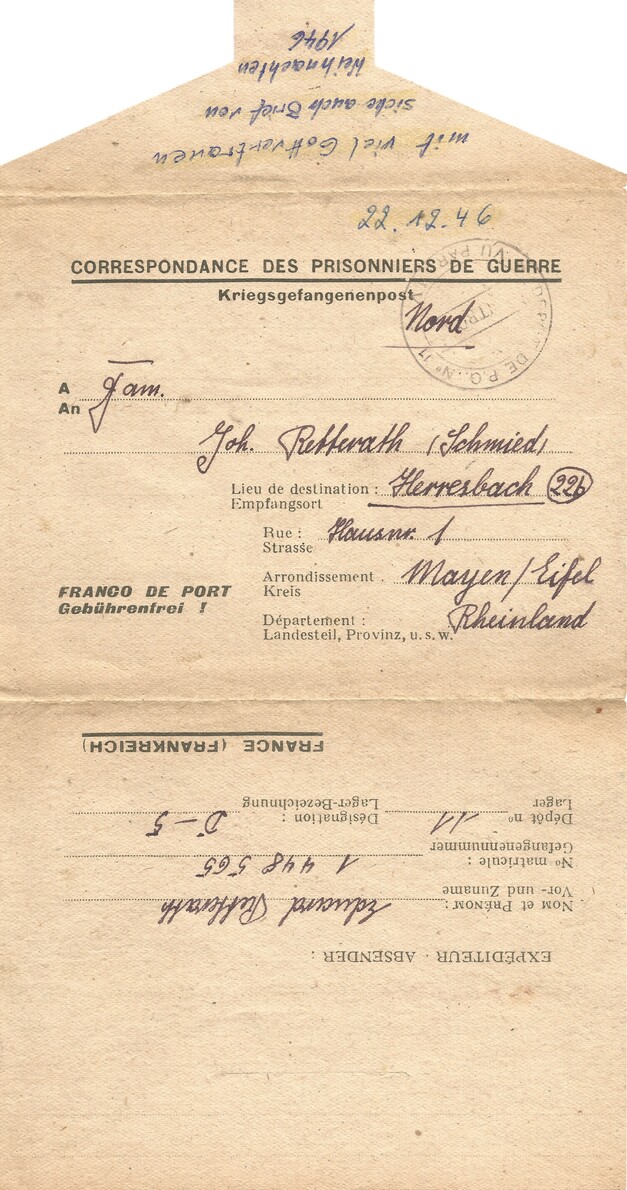 mit viel Gottvertrauen
siehe auch Brief von
Weihnachten
1946
22.12.46
CORRESPONDANCE DES PRISONNIERS DE GUERRE
Kriegsgefangenenpost
Nord
A
An
Fam.
Joh. Retterath (Schmied)
Lieu de destination : Herresbach 22b
Empfangsort
Rue : Hausnr. 1
Strasse
Arrondissement . Mayen/Eifel
Kreis
FRANCO DE PORT
Gebührenfrei !
Département : Rheinland
Landesteil, Provinz, u.s.w.
DÉPÔT DE P.G. Nº 11
VU PAR
EXPÉDITEUR · ABSENDER :
NOM et PRÉNOM : Eduard Retterath
Vor- und Zuname
Nº matricule : 1 448 565
Gefangenennummer
Dépôt nº 11 Désignation : D-5
Lager Lager-Bezeichnung
FRANCE (FRANKREICH)